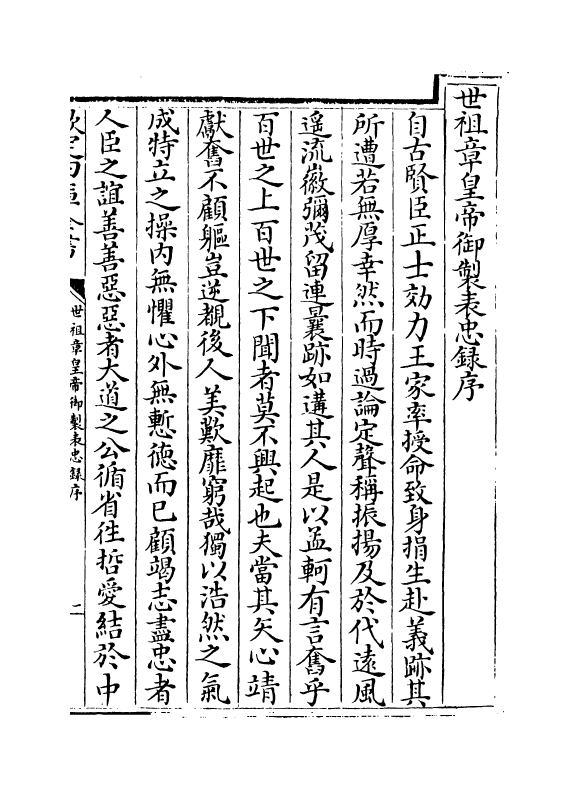 世祖章皇帝御製表忠録序
自古賢臣正士効力王家率授命致身捐生赴義跡其
所遭若無厚幸然而時過論定聲稱振揚及於代逺風
遥流徽彌茂留連曩跡如遘其人是以孟軻有言奮乎
百世之上百世之下聞者莫不興起也夫當其矢心靖
獻奮不顧軀豈逆覩後人美歎靡窮哉獨以浩然之氣
成特立之操内無懼心外無慙徳而已顧竭志盡忠者
人臣之誼善善惡惡者大道之公循省徃哲愛結於中
欽定四庫全書
世祖章皇帝御製表忠録序
二